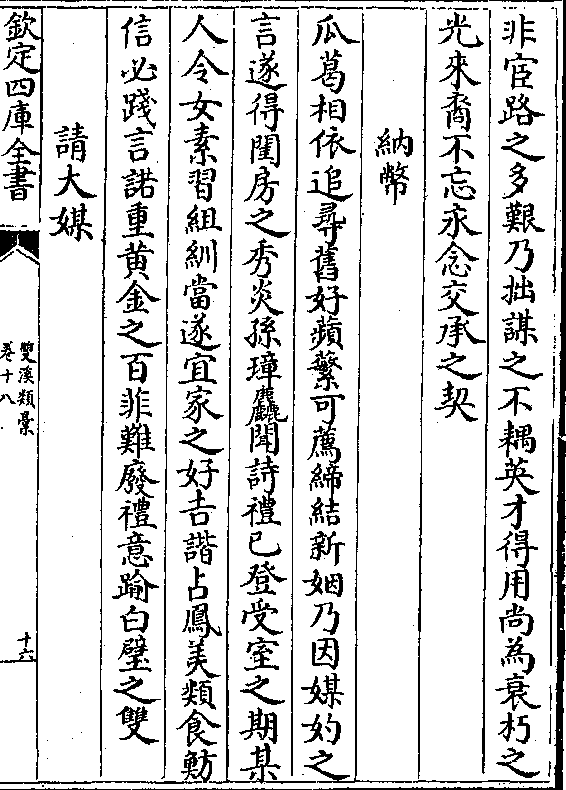 非宦路之多艱乃拙謀之不耦英才得用尚為衰朽之
光來裔不忘永念交承之契
納幣
瓜葛相依追尋舊好蘋蘩可薦締結新姻乃因媒妁之
言遂得閨房之秀炎孫璋麤聞詩禮已登受室之期某
人令女素習組紃當遂宜家之好吉諧占鳳美類食魴
信必踐言諾重黄金之百非難廢禮意踰白璧之雙
請大媒
欽定四庫全書
雙溪類稾
卷十八
十六